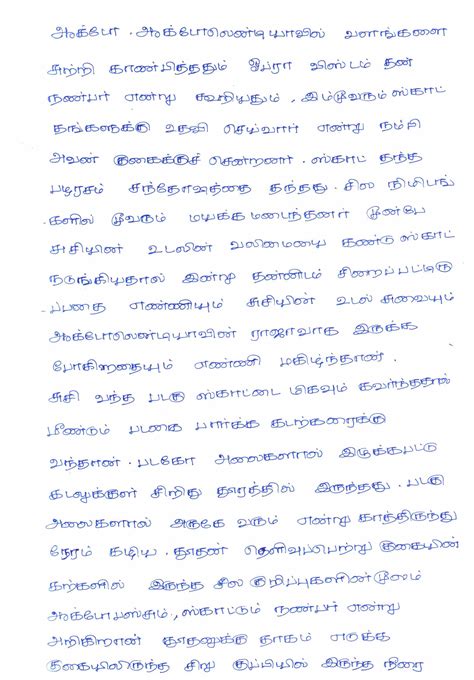 ஆக்டோ. ஆக்டோலெண்டியாவில் வளங்களை
சுற்றி காண்பித்ததும் ஓபரா விஸ்டம் தன்
நண்பர் என்று கூறியதும், இம்மூவரும் ஸ்காட்
தங்களுக்கு உதவி செய்வார் என்று நம்பி
அவன் குகைக்குச் சென்றனர். ஸ்காட் தந்த
பழரசம் சந்தோஷத்தை தந்தது. சில நிமிடங்
களில் மூவரும் மயக்கமடைந்தனர் முன்பே
சுசியின் உடலின் வலிமையை கண்டு ஸ்காட்
நடுங்கியதால் இன்று தன்னிடம் சிறைப்பட்டிரு
ப்பதை எண்ணியும் சுசியின் உடல் சுவையும்
ஆக்டோலெண்டியாவின் ராஜாவாக இருக்க
போகிறதையும் எண்ணி மகிழ்ந்தான்.
சுசி வந்த படகு ஸ்காட்டை மிகவும் கவர்ந்ததால்
மீண்டும் படகை பார்க்க கடற்கரைக்கு
வந்தான். படகோ அலைகளால் இழுக்கபட்டு
கடலுக்குள் சிறிது தூரத்தில் இருந்தது. படகு
அலைகளால் அருகே வரும் என்று காத்திருந்து
நேரம் கடிய. தூதன் தெளிவுபெற்று குகையின்
கற்களில் இருந்த சில குறிப்புகளின் மூலம்
ஆக்டோபஸ்சும், ஸ்காட்டும் நண்பர் என்று
அறிகிறான் தூதனுக்கு தாகம் எடுக்க
குகையிலிருந்த சிறு குப்பியில் இருந்த நீரை